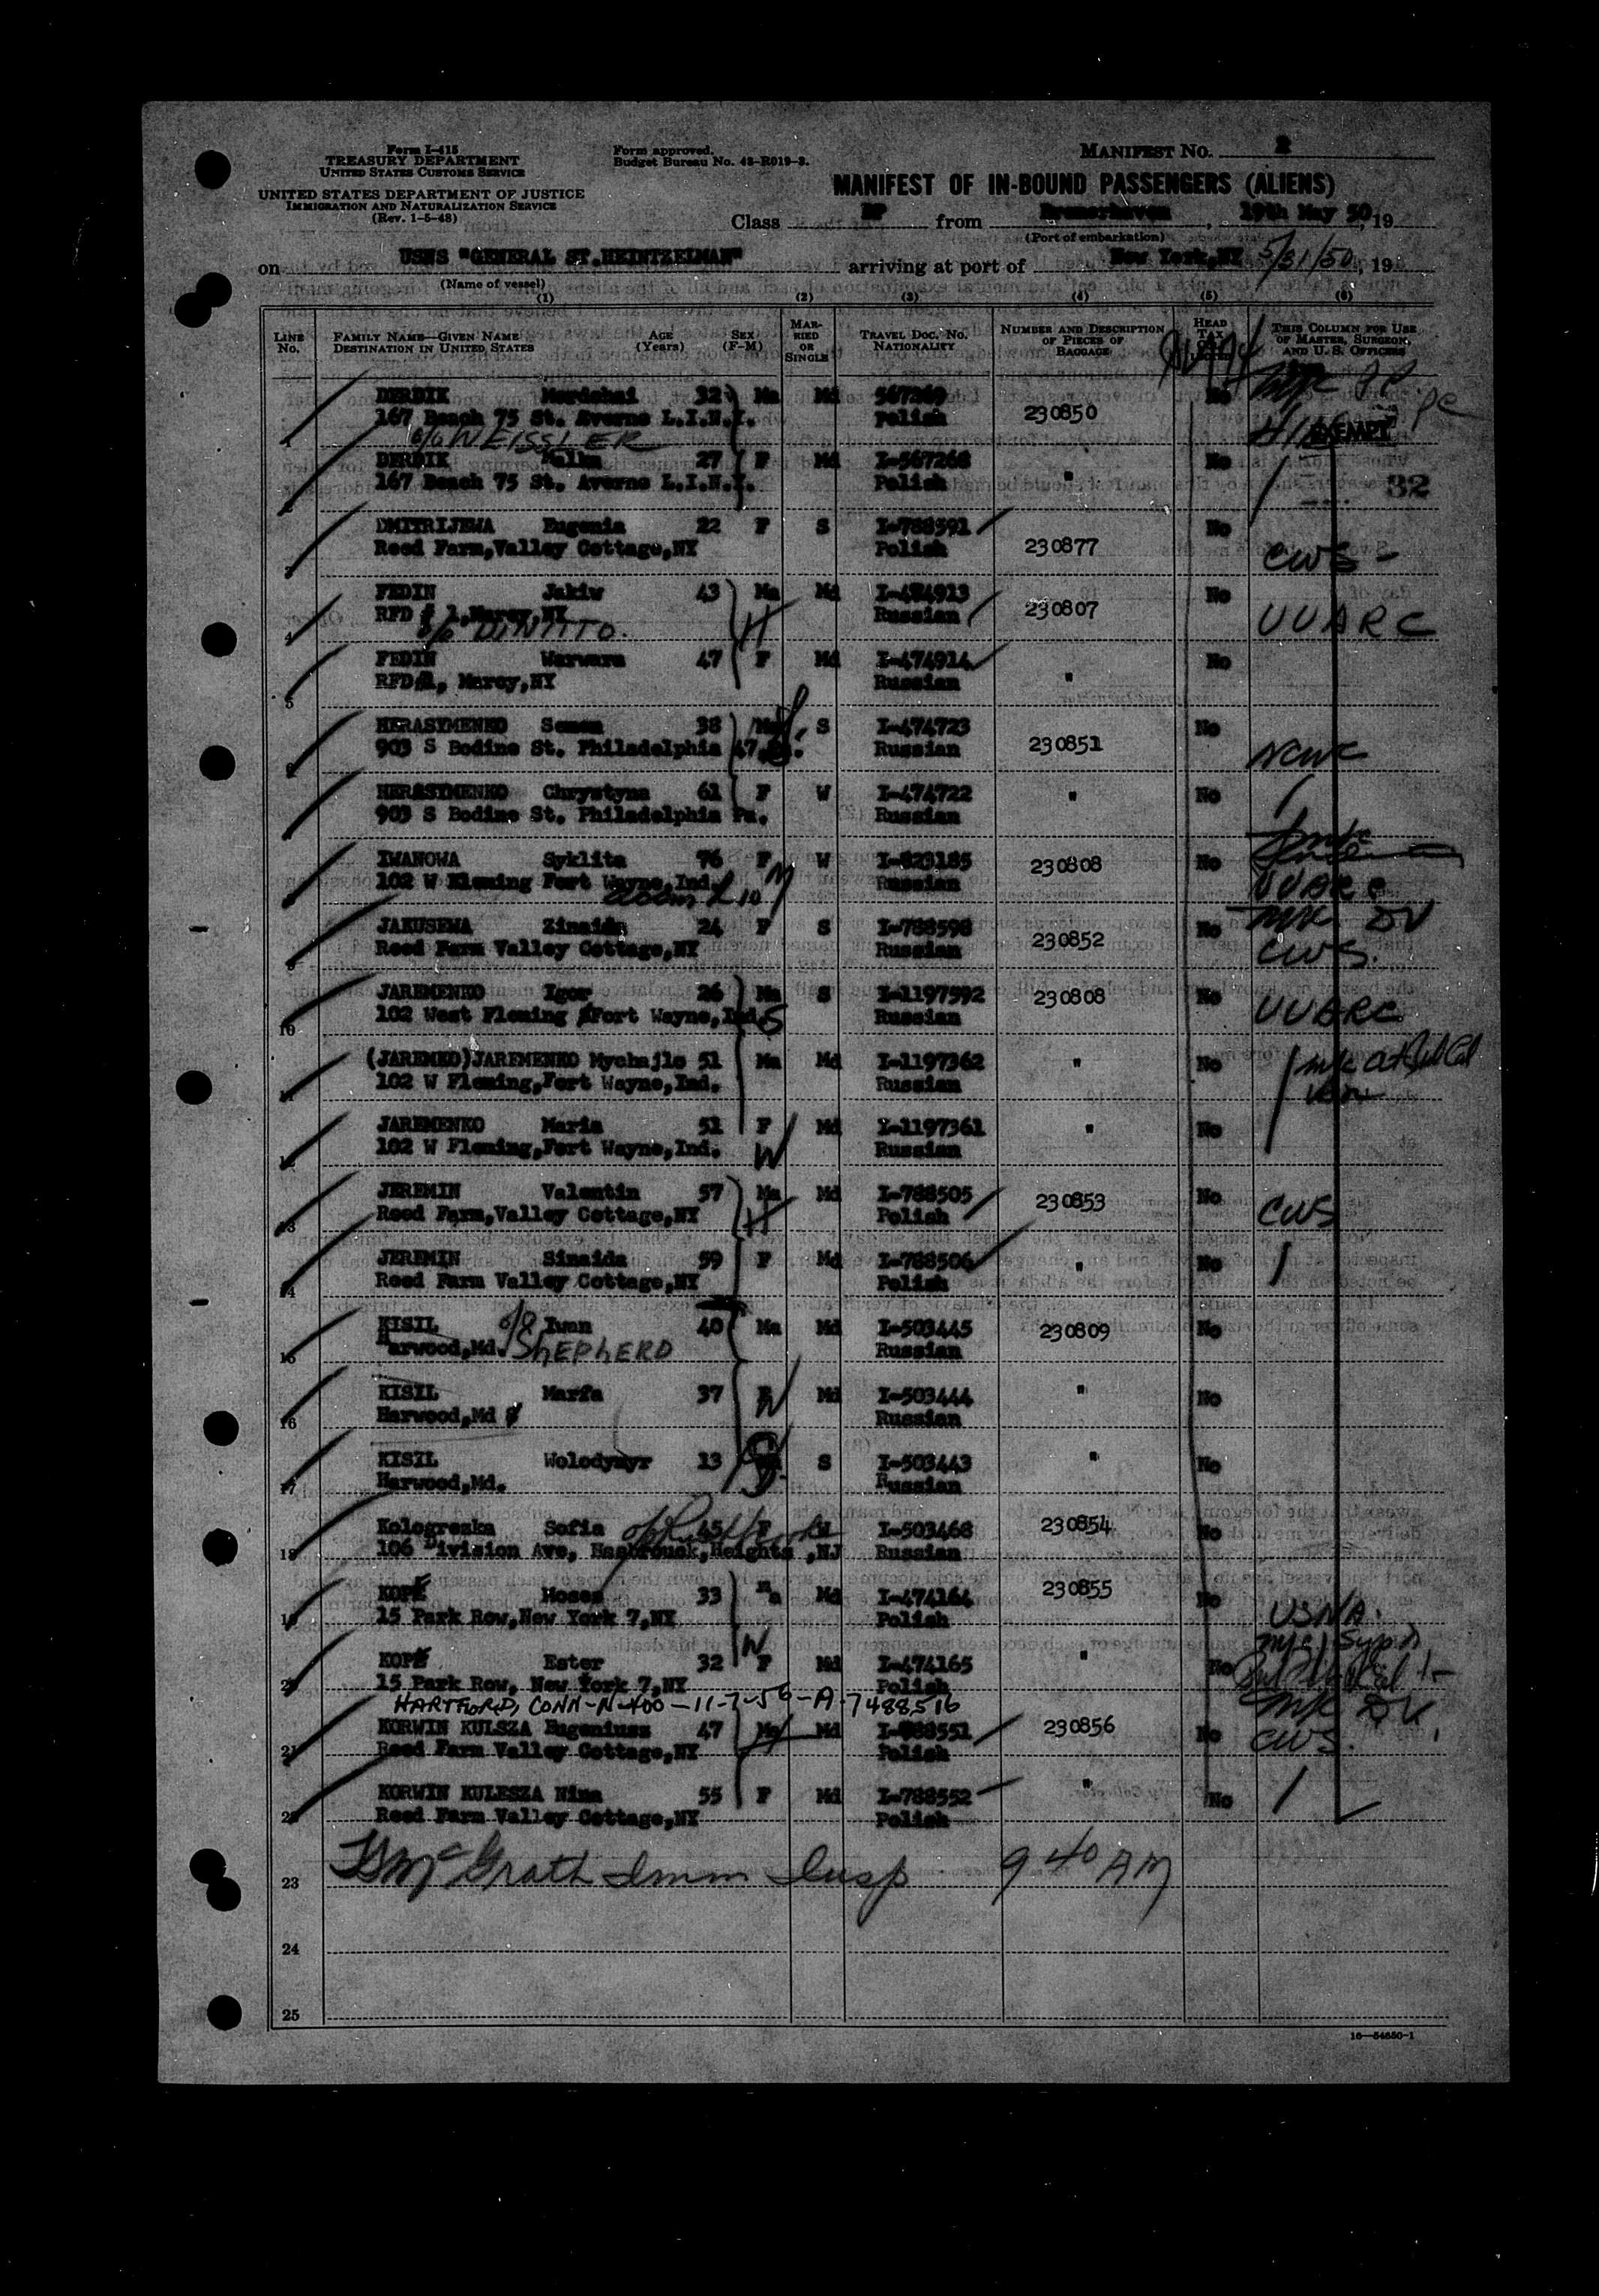 Form I-415
TREASURY DEPARTMENT
UNITED STATES CUSTOMS SERVICE
UNITED STATES DEPARTMENT OF JUSTICE
IMMIGRATION AND NATURALIZATION SERVICE
(Rev. 1-5-48)
Form approved.
Budget Bureau No. 43-R019-3.
MANIFEST No. 2
MANIFEST OF IN-BOUND PASSENGERS (ALIENS)
Class DP from Bremerhaven, 19th May 50, 19
(Port of embarkation)
on USNS "GENERAL ST.HEINTZELMAN" arriving at port of New York,NY 5/31/50, 19
(Name of vessel)
(1) (2) (3) (4) (5) (6)
LINE No. FAMILY NAME—GIVEN NAME DESTINATION IN UNITED STATES AGE (Years) SEX (F-M) MARRIED OR SINGLE TRAVEL DOC. No. NATIONALITY NUMBER AND DESCRIPTION OF PIECES OF BAGGAGE HEAD TAX THIS COLUMN FOR USE OF MASTER, SURGEON, AND U. S. OFFICERS
1 DERBIK Mordchai 32 Ma Md 567269 230850 No
167 Beach 75 St. Averne L.I.N.Y. Polish EXEMPT
c/o WEISSLER
2 DERBIK Malka 27 F Md I-567268 " No
167 Beach 75 St. Averne L.I.N.Y. Polish 32
3 DMITRIJEWA Eugenia 22 F S I-788591 230877 No
Reed Farm,Valley Cottage,NY Polish CWS
4 FEDIN Jakiw 43 Ma Md I-474913 230807 No
RFD # 1,Marcy,NY H Russian UUARC
c/o DINTITO.
5 FEDIN Warwara 47 F Md I-474914 " No
RFD#1, Marcy,NY Russian
6 HERASYMENKO Semen 38 Ma S I-474723 230851 No
903 S Bodine St. Philadelphia 47, Russian NCWC
7 HERASYMENKO Chrystyna 61 F W I-474722 " No
903 S Bodine St. Philadelphia Pa. Russian
8 IWANOWA Syklita 76 F W I-823185 230808 No
102 W Fleming Fort Wayne,Ind. M Russian UUARC
9 JAKUSEWA Zinaida 24 F S I-788598 230852 No
Reed Farm Valley Cottage,NY Russian CWS.
10 JAREMENKO Igor 26 Ma S I-1197592 230808 No
102 West Fleming Fort Wayne,Ind. S Russian UUARC
11 (JAREMKO)JAREMENKO Mychajlo 51 Ma Md I-1197362 " No
102 W Fleming,Fort Wayne,Ind. Russian
12 JAREMENKO Maria 51 F Md I-1197361 " No
102 W Fleming,Fort Wayne,Ind. W Russian
13 JEREMIN Valentin 57 Ma Md I-788505 230853 No
Reed Farm,Valley Cottage,NY H Polish CWS
14 JEREMIN Sinaida 59 F Md I-788506 " No
Reed Farm Valley Cottage,NY Polish
15 KISIL Iwan 40 Ma Md I-503445 230809 No
Harwood,Md. c/o SHEPHERD Russian
16 KISIL Marfa 37 F Md I-503444 " No
Harwood,Md W Russian
17 KISIL Wolodymyr 13 S I-503443 " No
Harwood,Md. Russian
18 Kologrezka Sofia 45 F W I-503468 230854 No
106 Division Ave, Hasbrouck,Heights ,NJ Russian
19 KOPE Moses 33 Ma Md I-474164 230855 No
15 Park Row,New York 7,NY Polish USNA.
20 KOPE Ester 32 F Md I-474165 " No
15 Park Row, New York 7,NY W Polish
HARTFORD, CONN-N-400-11-7-56-A-7488516
21 KORWIN KULSZA Eugeniusz 47 Ma Md I-788551 230856 No
Reed Farm Valley Cottage,NY Polish CWS.
22 KORWIN KULESZA Nina 55 F Md I-788552 " No
Reed Farm Valley Cottage,NY Polish
23 McGrath Imm Insp 9 40 AM
24
25
16—54650-1